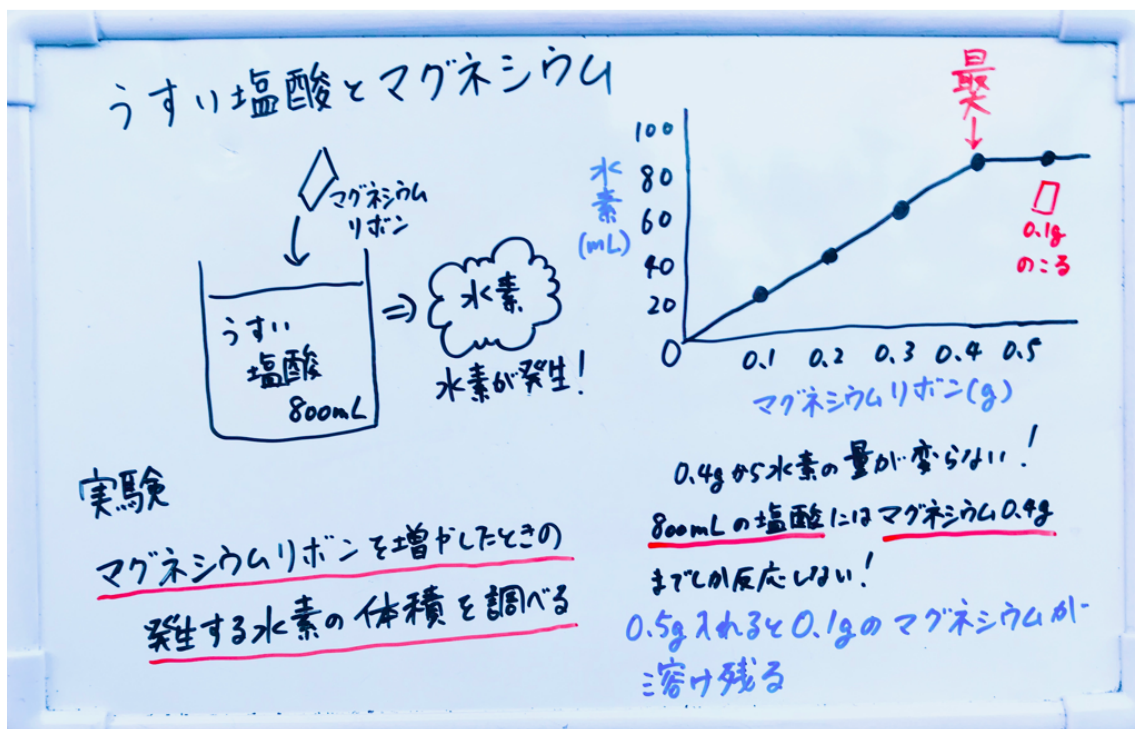 うすい塩酸とマグネシウム
マグネシウム
リボン
うすい
塩酸
800mL
水素
水素が発生!
実験
マグネシウムリボンを増やしたときの
発生する水素の体積を調べる
最大
水素
(mL)
100
80
60
40
20
0
0.1 0.2 0.3 0.4 0.5
マグネシウムリボン(g)
0.1g
のこる
0.4gから水素の量が変らない!
800mLの塩酸にはマグネシウム0.4g
までしか反応しない!
0.5g入れると0.1gのマグネシウムが
溶け残る